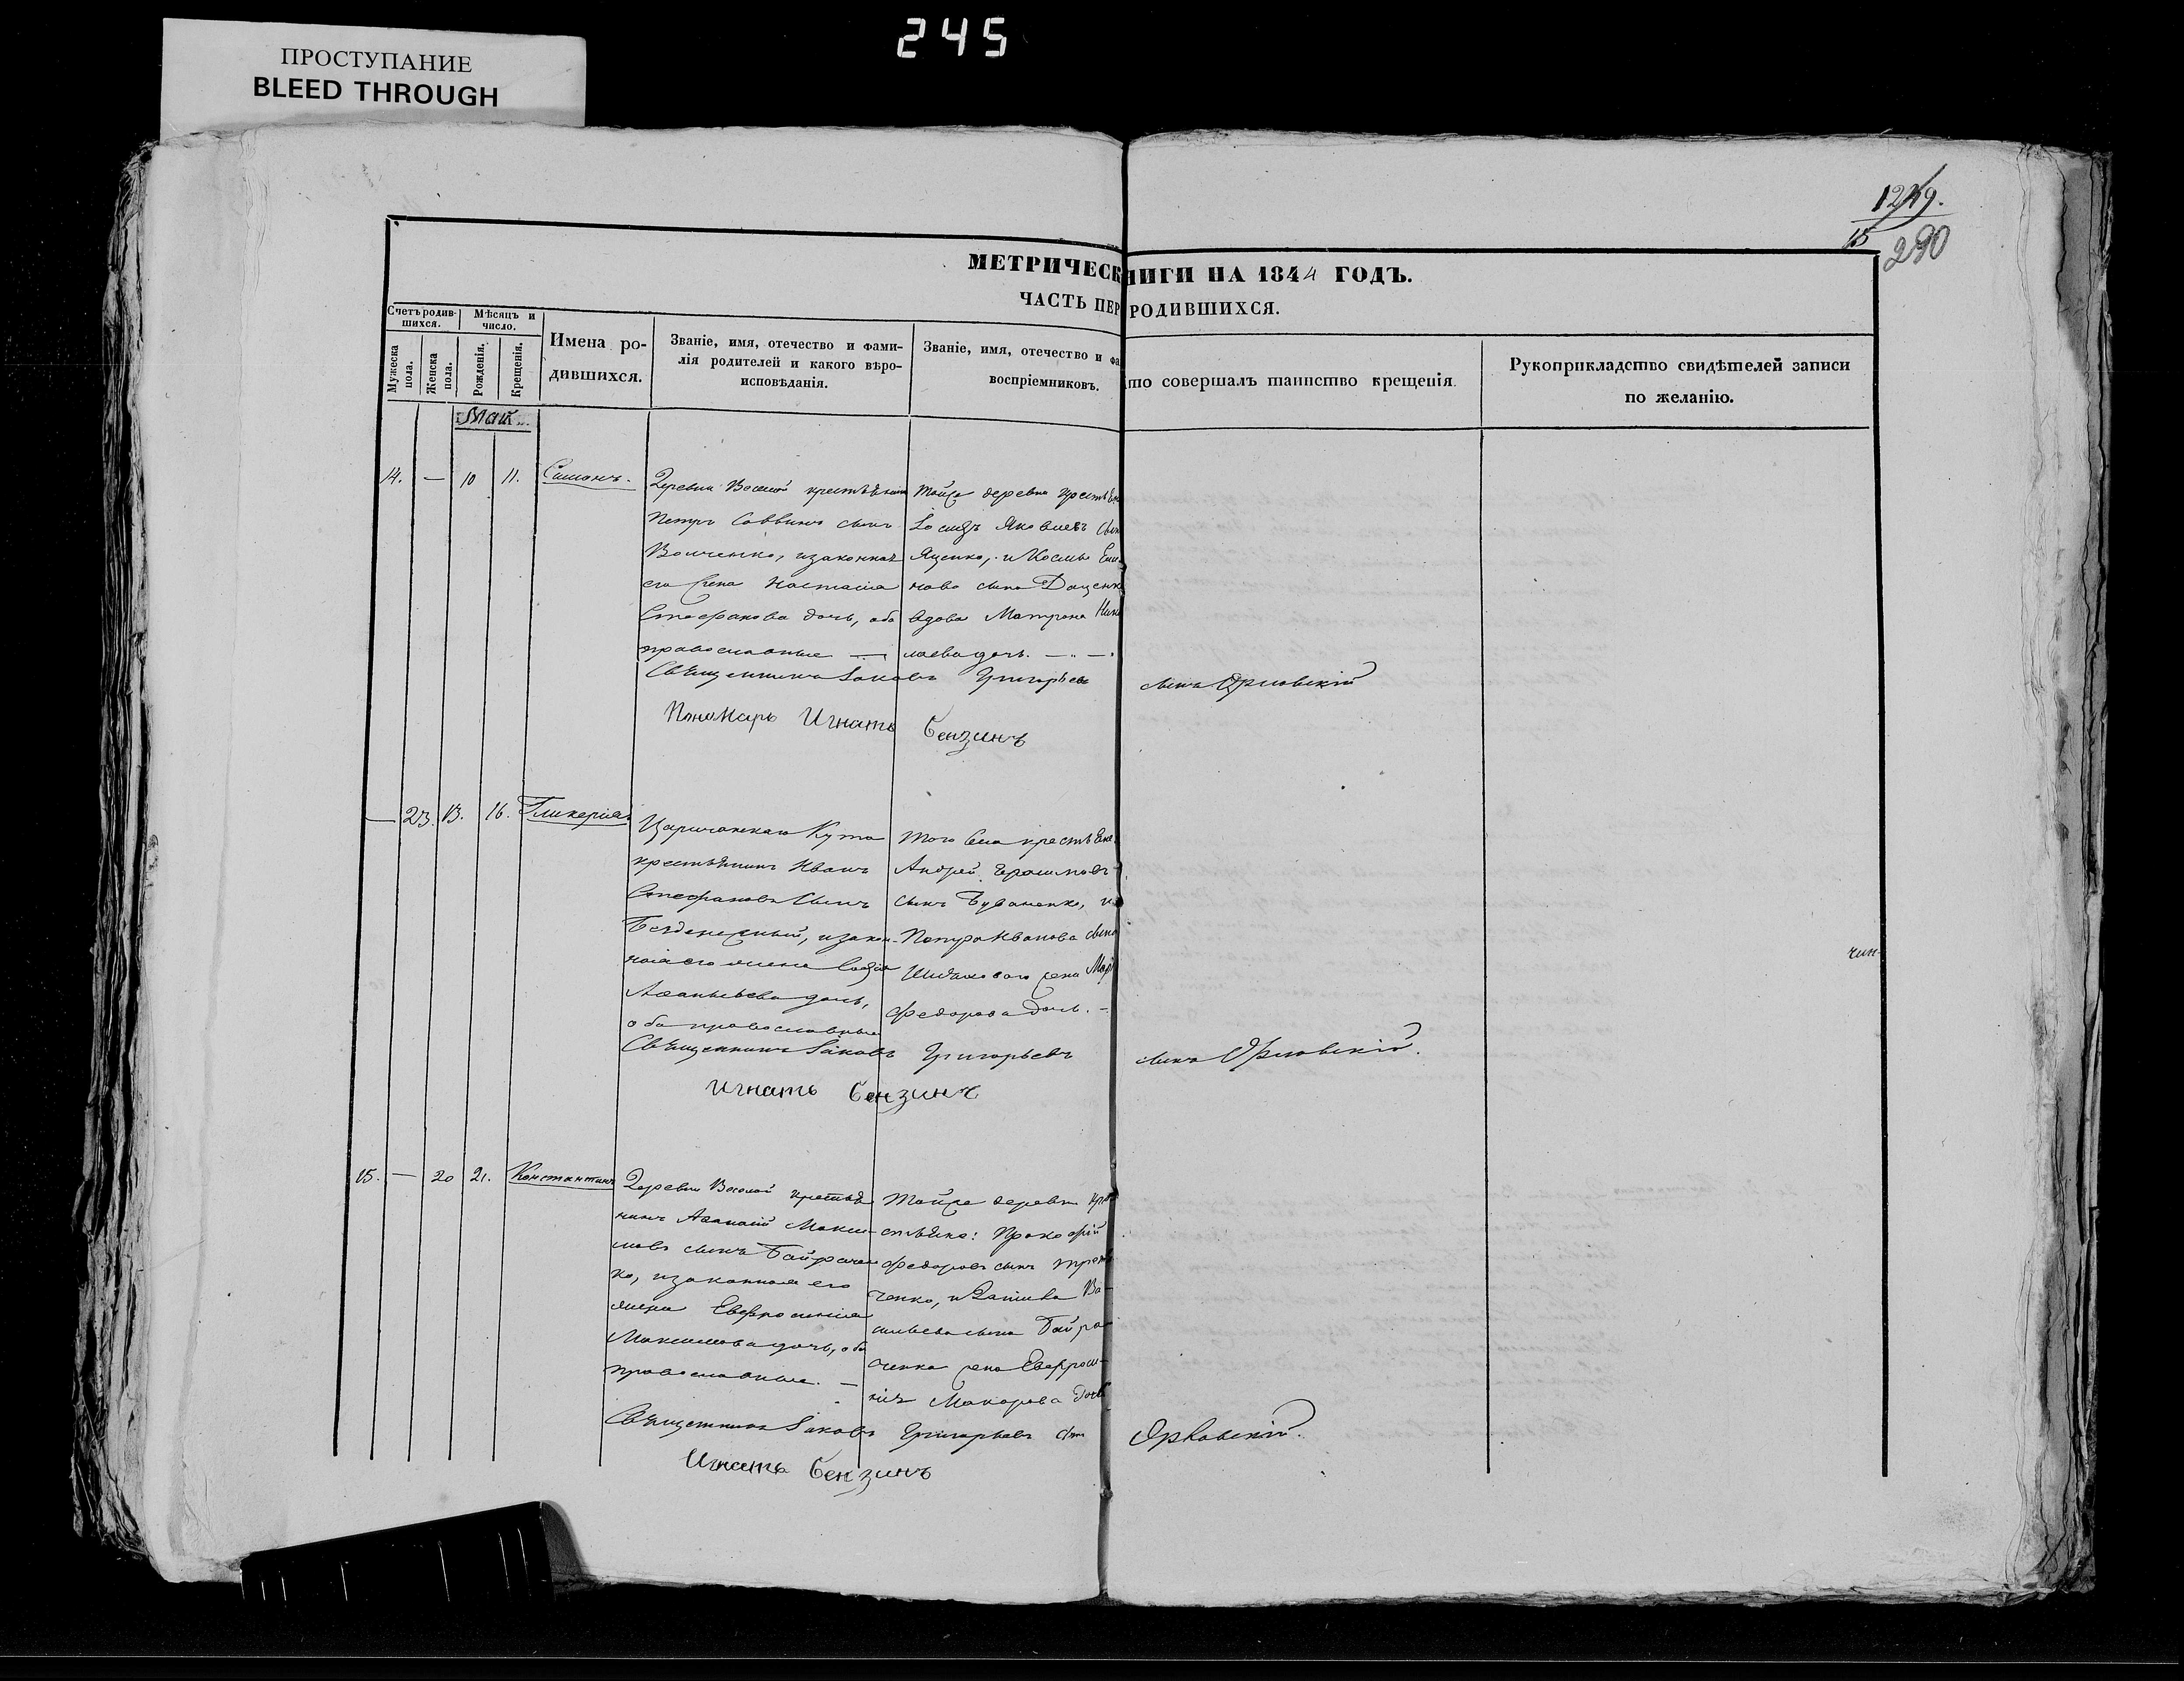 245
ПРОСТУПАНИЕ
BLEED THROUGH
1249.
15
290
МЕТРИЧЕСК НИГИ НА 1844 ГОДЪ.
ЧАСТЬ ПЕР РОДИВШИХСЯ.
Счетъ родив-
шихся.
Мужеска
пола.
Женска
пола.
Мѣсяцъ и
число.
Рожденія.
Крещенія.
Имена ро-
дившихся.
Званіе, имя, отечество и фами-
лія родителей и какого вѣро-
исповѣданія.
Званіе, имя, отечество и фа
воспріемниковъ.
то совершалъ таинство крещенія.
Рукоприкладство свидѣтелей записи
по желанію.
Май
14. — 10 11. Симонъ.
Деревни Веселой крестьянинъ
Петръ Саввинъ сынъ
Волченко, и законная
его жена Настасія
Стефанова дочь, оба
православные —
Тойже деревни крестьян
Іосифъ Яковлевъ сын
Яценко, и Космы
нова сына Доценк
вдова Матрона Нико
лаева дочь. — " —
Священникъ Іаковъ Григорьевъ сынъ Орловскій
Пономарь Игнатъ Бензинъ
— 23. 13. 16. Гликерія
Царичанскаго Кута
крестьянинъ Иванъ
Стефановъ сынъ
Безденежный, и закон-
ная его жена Софія
дочь,
оба православные
Того села крестьяне
Андрей
сынъ и
Петра Иванова сына
жена Мар
Федорова дочь. —
Священникъ Іаковъ Григорьевъ сынъ Орловскій.
Игнатъ Бензинъ
чин-
15. — 20 21. Константинъ
Деревни Веселой крестья
нинъ Макси-
мовъ сынъ Байрачен
ко, и законная его
жена Евфросинія
Максимова дочь, оба
православные. —
Тойже деревни кре
стьяне: Прокофій
Федоровъ сынъ
ченко, и Ва-
сильева сына Байра
ченка жена Евфроси-
нія Макарова дочь
Священникъ Іаковъ Григорьевъ сын Орловскій.
Игнатъ Бензинъ